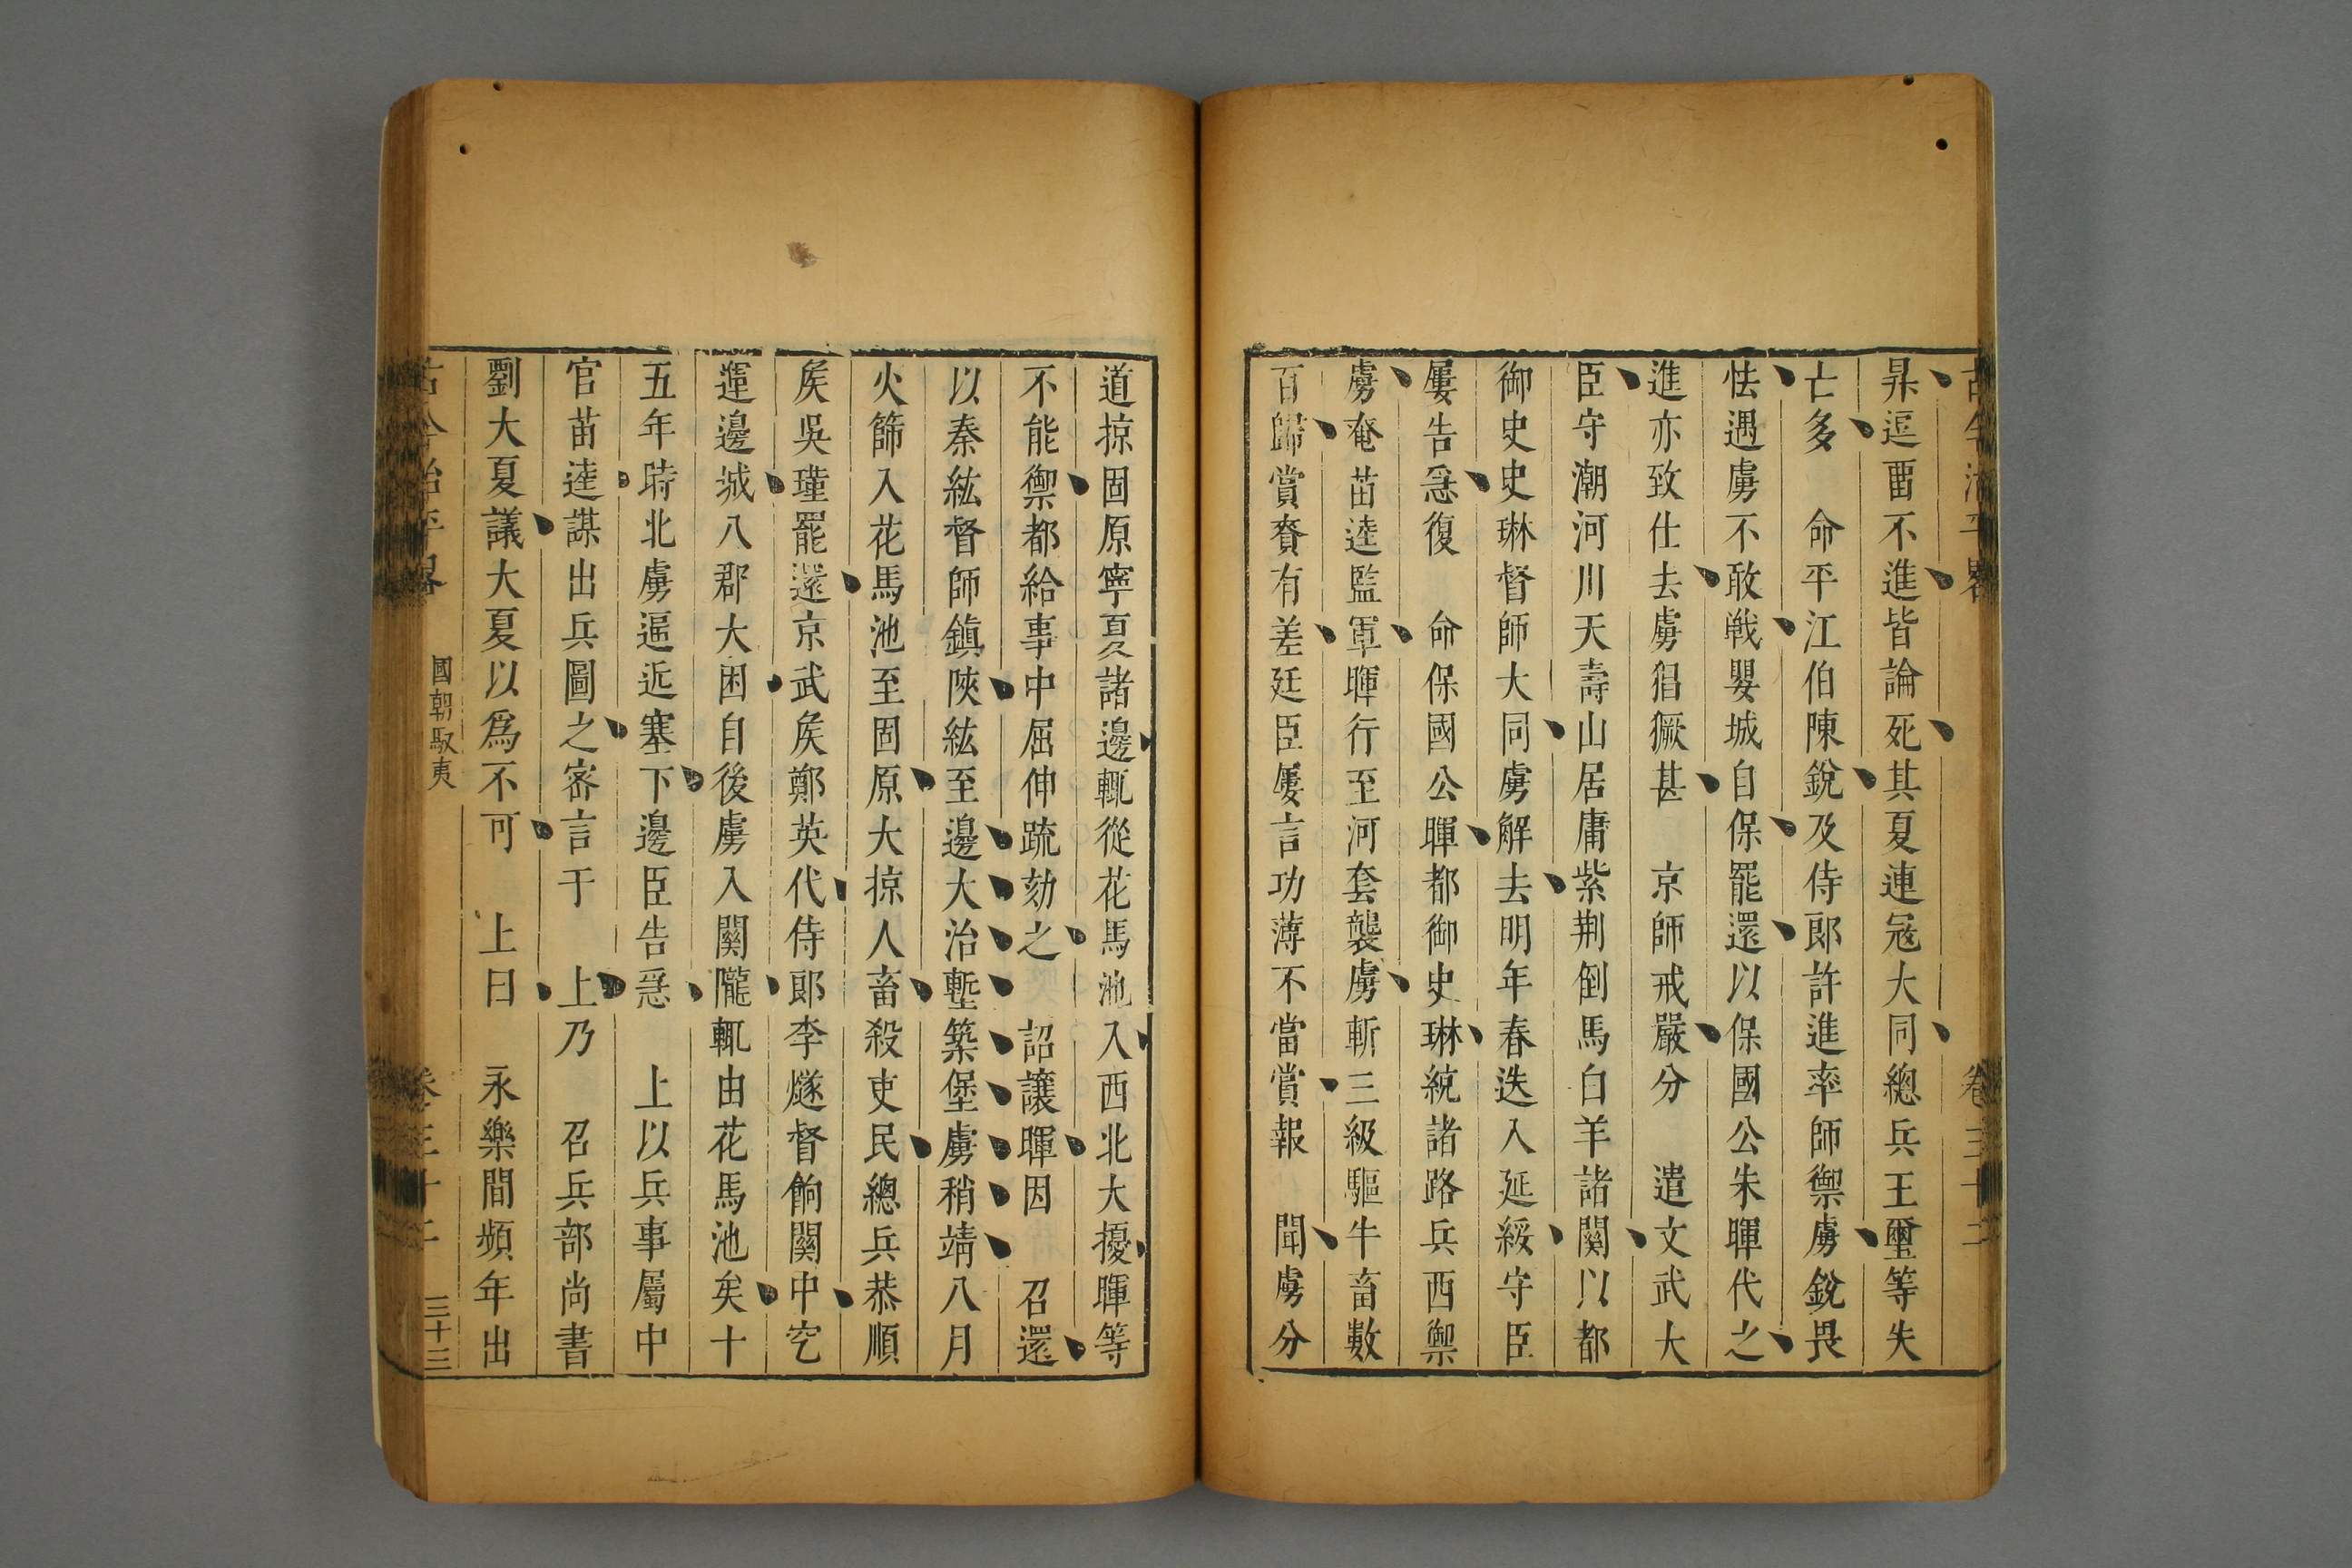 古今治平畧 卷三十二
杲逗畱不進皆論死其夏連冦大同總兵王璽等失
亡多 命平江伯陳銳及侍郎許進率師禦虜銳畏
怯遇虜不敢戰嬰城自保罷還以保國公朱暉代之
進亦致仕去虜猖獗甚 京師戒嚴分 遣文武大
臣守潮河川天壽山居庸紫荆倒馬白羊諸關以都
御史史琳督師大同虜解去明年春迭入延綏守臣
屢告急復 命保國公暉都御史琳統諸路兵西禦
虜奄苗逵監軍暉行至河套襲虜斬三級驅牛畜數
百歸賞賚有差廷臣屢言功薄不當賞報 聞虜分
道掠固原寧夏諸邊輒從花馬池入西北大擾暉等
不能禦都給事中屈伸疏劾之 詔讓暉因 召還
以秦紘督師鎮陝紘至邊大治塹築堡虜稍靖八月
火篩入花馬池至固原大掠人畜殺吏民總兵恭順
矦吳瑾罷還京武矦鄭英代侍郎李燧督餉關中空
運邊城八郡大困自後虜入關隴輒由花馬池矣十
五年時北虜逼近塞下邊臣告急 上以兵事屬中
官苗逵謀出兵圖之密言于 上乃 召兵部尚書
劉大夏議大夏以爲不可 上曰 永樂間頻年出
古今治平畧 國朝馭夷 卷三十二 三十三